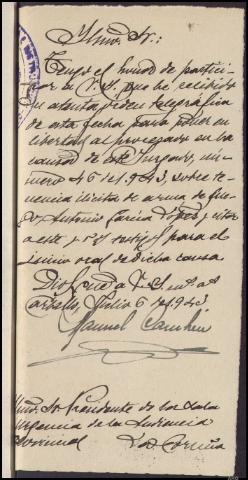 Iltmo. Sr.:
Tengo el honor de partici-
par a V.S. que he recibido
su atenta orden telegráfica
de esta fecha para poner en
libertad al procesado en la
causa de este Juzgado, nú-
mero 46 de 1.943, sobre te-
nencia ilícita de arma de fue-
go, Antonio García López, y
este y testigos para el
juicio oral de dicha causa.
Dios guarde a V.S. m. as
Carballo, Julio 6 de 1.943
Manuel
Iltmo. Sr. Presidente de la Sala
Urgencia de la Audiencia
Provincial La Coruña